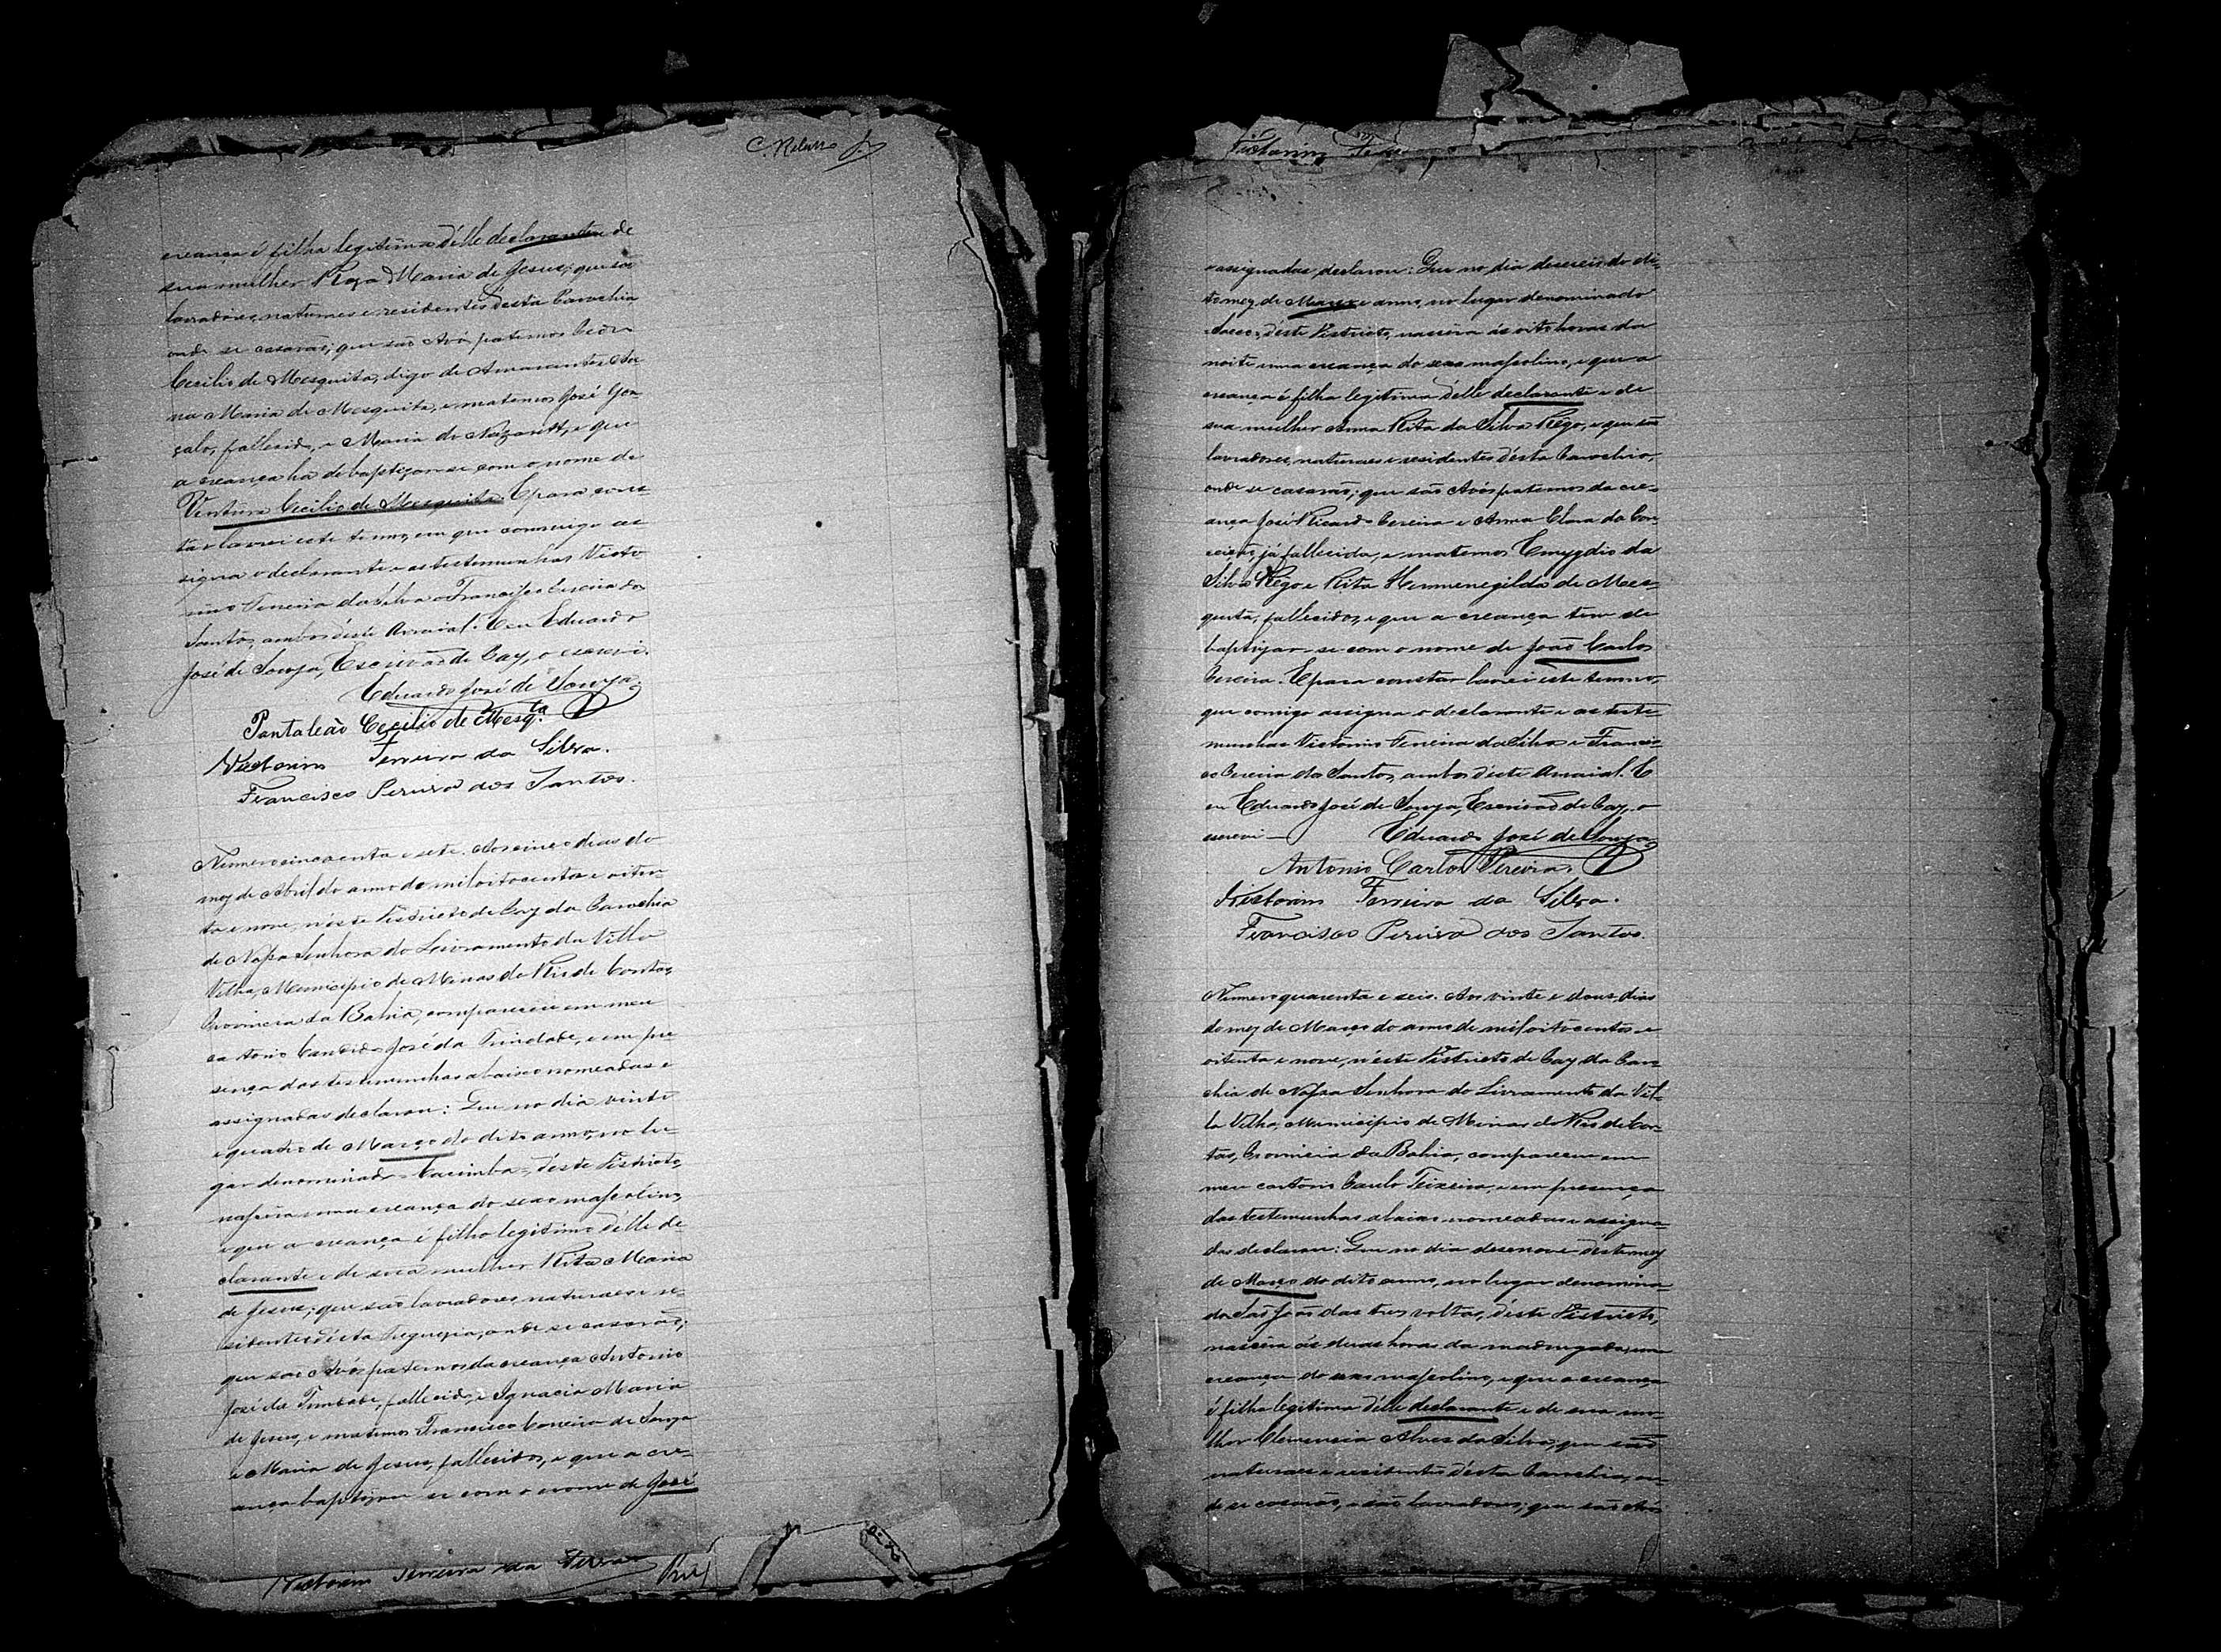 C. Rebello
creança é filha legitima d'elle declarante e de
sua mulher Roza Maria de Jesus; que são
lavradores, naturaes e residentes desta Parochia
onde se casarão; que são Avós paternos
Cecilio de Mesquita, digo de Amarantes An
na Maria de Mesquita, e maternos José Gon
çalo, fallecido, e Maria do Nazareth, e que
a creança ha de baptizar-se com o nome de
Ventura Cecilio de Mesquita. E para cons
tar lavrei este termo, em que commigo as
signa o declarante e as testemunhas Victo
rino Ferreira da Silva e Francisco Pereira dos
Santos, ambos d'este Arraial. E eu Eduardo
José de Souza, Escrivão de Paz, o escrevi.
Eduardo José de Souza
Pantaleão Cecilio de Mesq.ta
Victorino Ferreira da Silva.
Francisco Pereira dos Santos.
Numero cincoenta e sete. Aos cinco dias do
mez de Abril do anno de mil oitocentos e oiten
ta e nove, n'este Districto de Paz da Parochia
de Nossa Senhora do Livramento da Villa
Velha, Municipio de Minas do Rio de Contas,
Provincia da Bahia, compareceu em meu
cartorio Candido José da Trindade, e em pre
sença das testemunhas abaixo nomeadas e
assignadas declarou: Que no dia vinte
e quatro de Março do dito anno, no lu-
gar denominado = Cacimba =, d'este Districto,
nascêra uma creança do sexo masculino,
e que a creança é filho legitimo d'elle de
clarante e de sua mulher Rita Maria
de Jesus; que são lavradores, naturaes e re-
sidentes d'esta Freguezia, onde se casarão;
que são Avós paternos da creança Antonio
José da Trindade, fallecido, e Ignacia Maria
de Jesus, e maternos Francisco Correia de Souza
e Maria de Jesus, fallecidos, e que a cre-
ança baptizar se com o nome de José
Victorino Ferreira da Silva
Victorino Ferr
assignadas, declarou: Que no dia desesseis do di-
to mez de Março e anno, no lugar denominado
d'este Districto, nascêra ás oito horas da
noite uma creança do sexo masculino, e que a
creança é filha legitima d'elle declarante e de
sua mulher Anna Rita da Silva Rego, e que são
lavradores, naturaes e residentes d'esta Parochia,
onde se casarão; que são Avós paternos da cre-
ança José Ricardo Pereira e Anna Clara da Con-
ceição, já fallecida, e maternos Emygdio da
Silva Rego e Rita Hermenegilda de Mes-
quita, fallecidos, e que a creança tem de
baptizar-se com o nome de João Carlos
Pereira. E para constar lavrei este termo,
que comigo assigna o declarante e as teste-
munhas Victorino Ferreira da Silva e Francis-
co Pereira dos Santos, ambos d'este Arraial. E
eu Eduardo José de Souza, Escrivão de Paz, o
escrevi — Eduardo José de Souza
Antonio Carlos Pereira
Victorino Ferreira da Silva.
Francisco Pereira dos Santos.
Numero quarenta e seis. Aos vinte e dous dias
do mez de Março do anno de mil oitocentos e
oitenta e nove, n'este Districto de Paz da Paro-
chia de Nossa Senhora do Livramento da Vil-
la Velha, Municipio de Minas do Rio de Con-
tas, Provincia da Bahia, compareceu em
meu cartorio Paulo Teixeira, e em presença
das testemunhas abaixo nomeadas e assigna-
das declarou: Que no dia desenove d'este mez
de Março do dito anno, no lugar denomina-
do São João das tres voltas, d'este Districto,
nascêra ás duas horas da madrugada uma
creança do sexo masculino, e que a creança
é filha legitima d'elle declarante e de sua mu-
lher Clemencia Alves da Silva, que são
naturaes e residentes d'esta Parochia, on-
de se casarão, e são lavradores; que são Avós